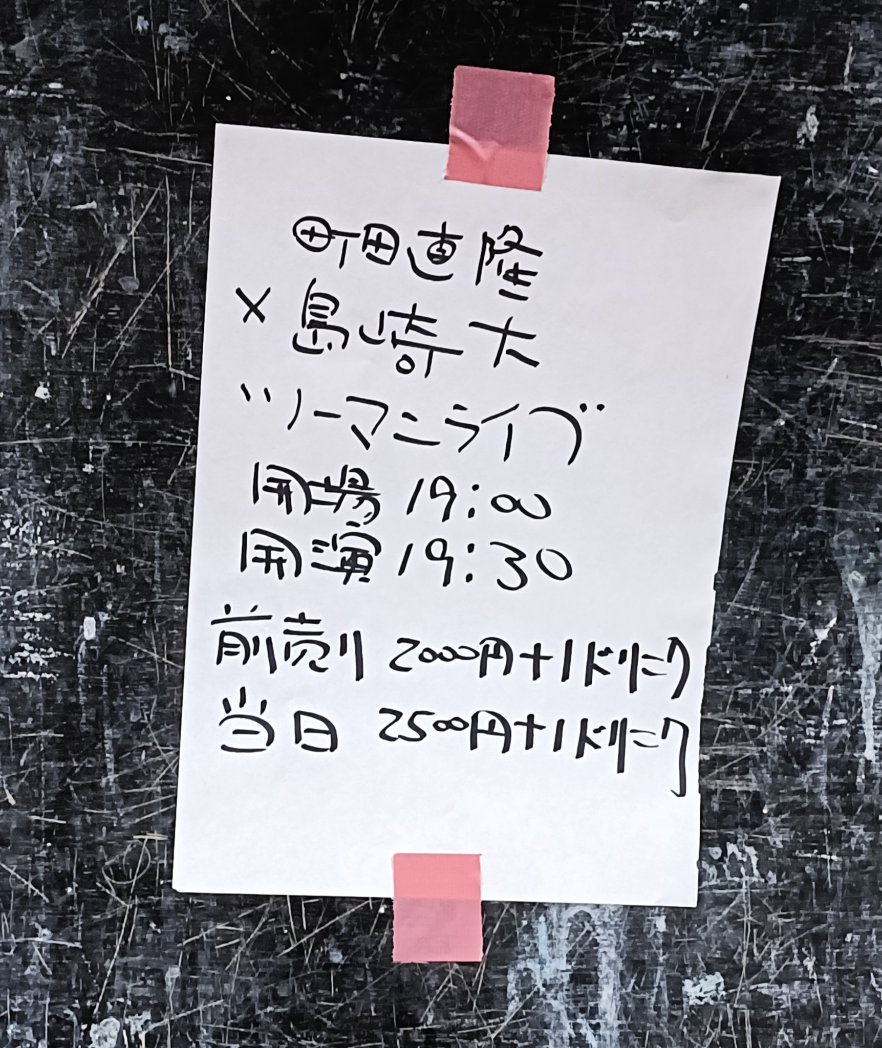 町田直隆
×島崎大
ツーマンライブ
開場 19:00
開演 19:30
前売り 2000円+1ドリンク
当日 2500円+1ドリンク